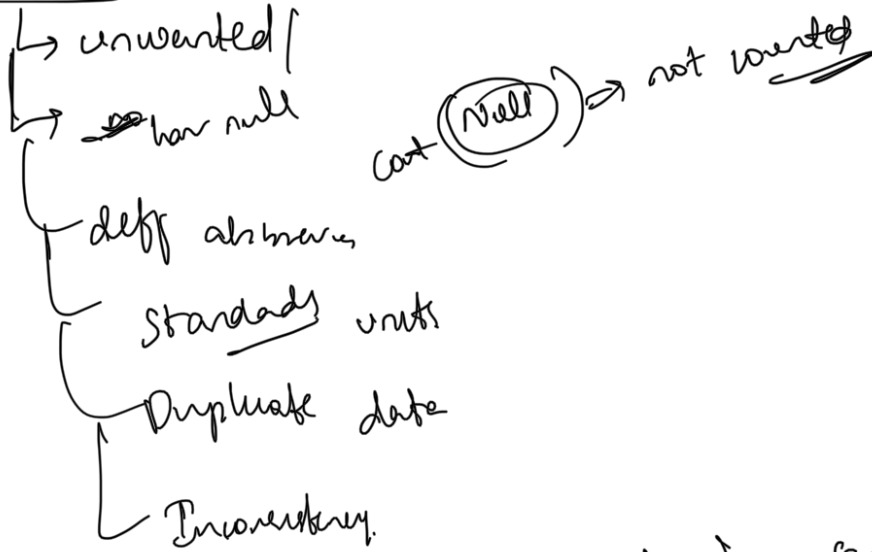 unwanted
have null
Count (Null) → not counted
deff
Standads units
Duplicate data
Inconsistency.